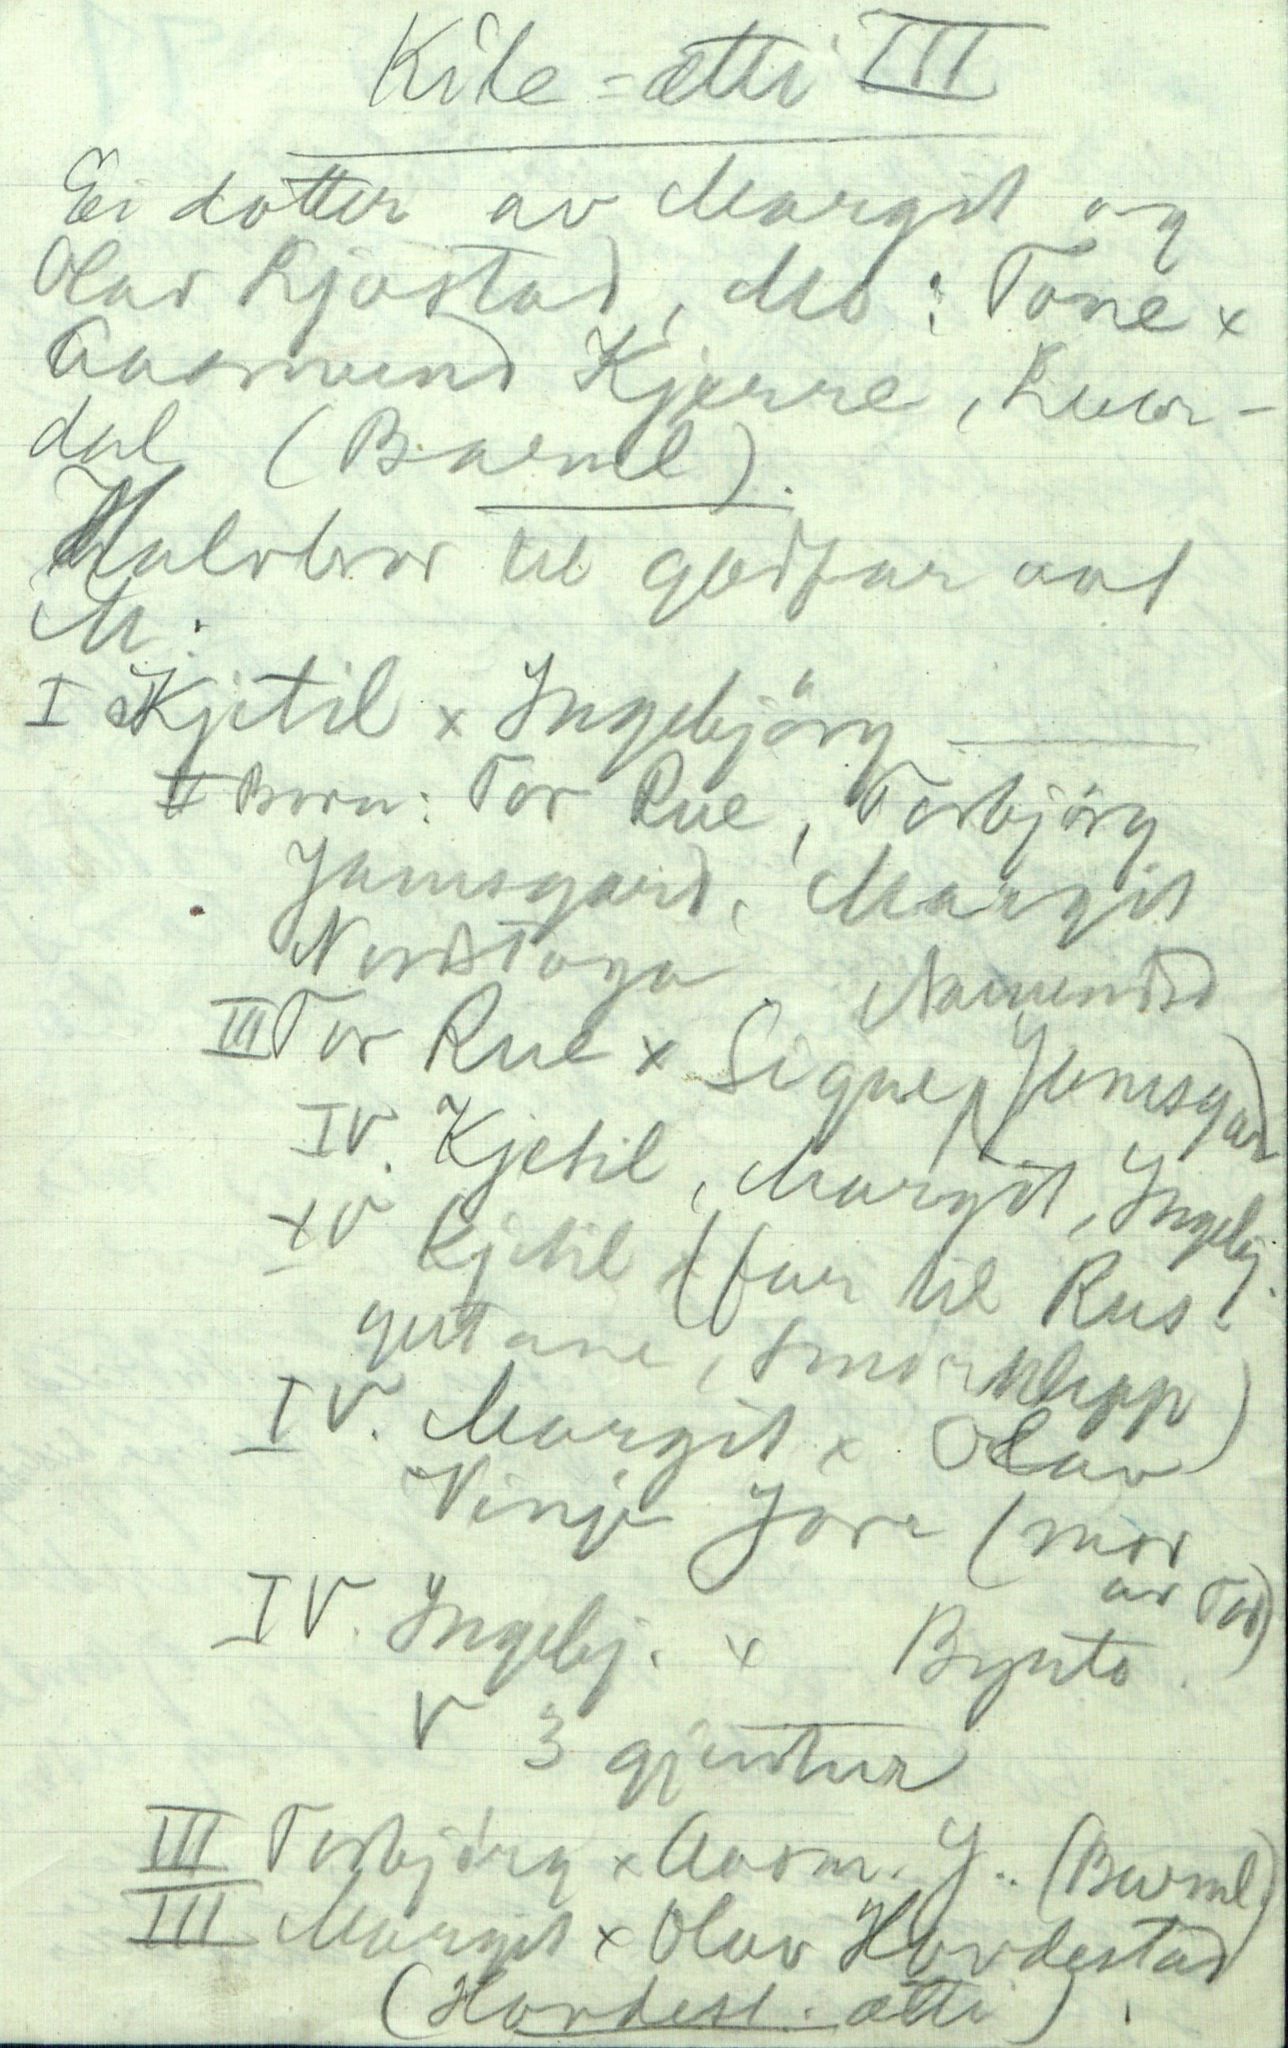 Kile-ætti III
Ei dotter av Margit og
Olav Ljøstad, Mo: Tone x
Aasmund Kjerre,
dal (Barnl).
Halvbror til godfar aat
M:
I Kjetil x Ingebjörg
II Born: Tor Rue, Torbjörg
Jamsgard, Margit
Nordstoga
III Tor Rue x Signe Aamundsd Jamsgar
IV. Kjetil, Margit, Ingebj.
IV Kjetil (far til Rus-
gutane, Smörklepp)
IV. Margit x Olav
Vinje Jore (mor
av Tor)
IV. Ingebj. x Bynto.
V 3 gjentur
III Torbjörg x Aasm. J.. (Barnl)
III Margit x Olav Hovdestad
(Hovdest. ætti)